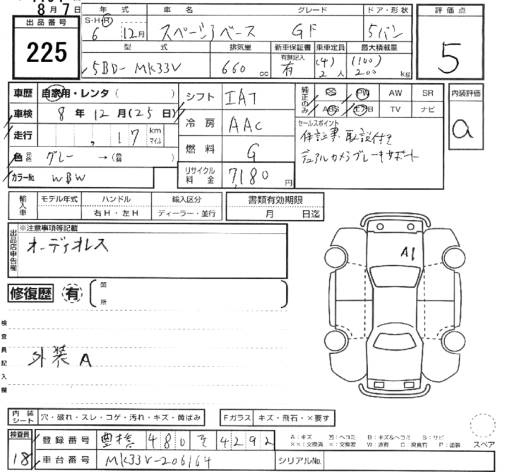 8月7日
出品番号
225
年式 車名 グレード ドア・形状
S・H・R 6年 12月 スペーシアベース GF 5バン
型式 排気量 新車保証書 乗車定員 最大積載量
5BD-MK33V 660cc 有無記入 有 (4) 2人 (100) 200kg
評価点
5
車歴 自家用・レンタ( )
車検 8年12月(25日)
走行 ,17 km マイル
色 グレー→( )
カラーNo. WBW
シフト IAT
冷房 AAC
燃料 G
リサイクル料金 7,180円
純正のみ PS PW AW SR
ABS エアB TV ナビ
セールスポイント
保証書取説付き
デュアルカメラブレーキサポート
内装評価
a
輸入車 モデル年式 ハンドル 輸入区分
年 右H・左H ディーラー・並行
書類有効期限
月 日迄
出品店申告欄
※注意事項等記載
オーディオレス
修復歴 有 箇所
検査員記入欄
外装A
A1
内装シート 穴・破れ・スレ・コゲ・汚れ・キズ・黄ばみ
Fガラス キズ・飛石・×要す
検査員 18
登録番号 豊橋 480 そ 4292
車台番号 MK33V-206164
シリアルNo.
A:キズ U:ヘコミ B:キズ&ヘコミ S:サビ
スペア